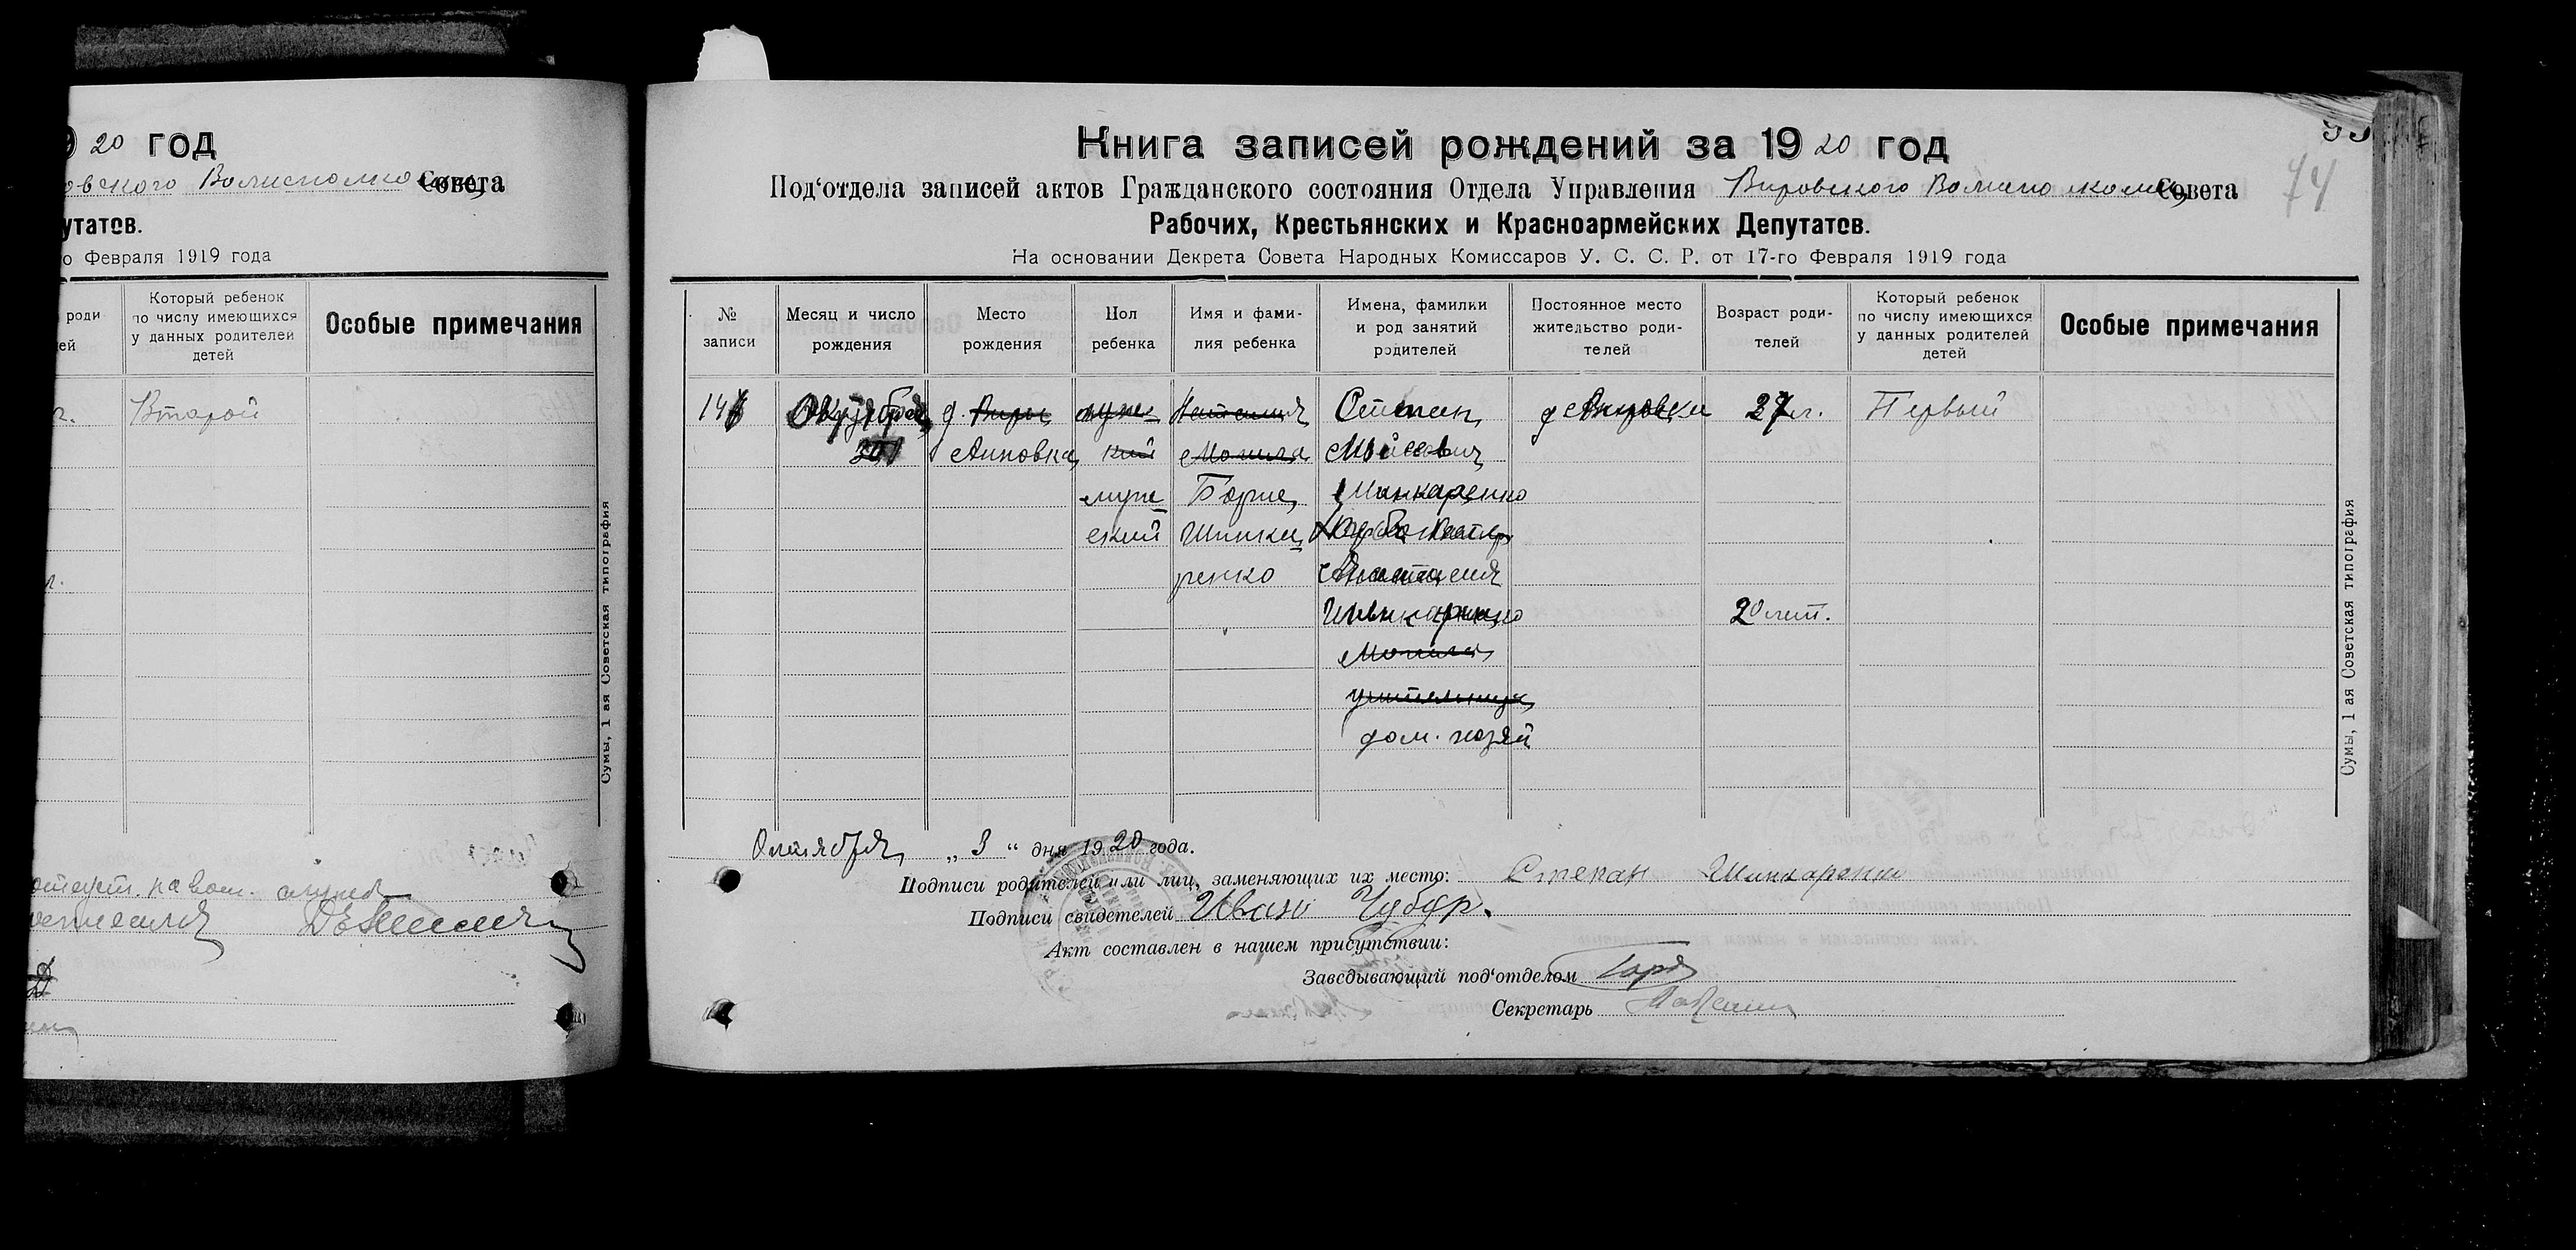 20 год
овского Волисполкома Совета
утатов.
о Февраля 1919 года
роди
ей
Который ребенок
по числу имеющихся
у данных родителей
детей
Особые примечания
г.
Второй
Сумы, 1 ая Советская типография
Книга записей рождений за 1920 год
74
Под‘отдела записей актов Гражданского состояния Отдела Управления Вировского Волисполкома Совета
Рабочих, Крестьянских и Красноармейских Депутатов.
На основании Декрета Совета Народных Комиссаров У. С. С. Р. от 17-го Февраля 1919 года
№
записи
Месяц и число
рождения
Место
рождения
Пол
ребенка
Имя и фами-
лия ребенка
Имена, фамилии
и род занятий
родителей
Постоянное место
жительство роди-
телей
Возраст роди-
телей
Который ребенок
по числу имеющихся
у данных родителей
детей
Особые примечания
14 Октября д. Виры муж Степан д 27 л. Первый
кий Могила Мойсеевич
муж Борис Шинкаренко
ский Шинка
ренко Анастасия
Шинкаренко 20 лет.
Могила
учительница
дом. хозяй
Сумы, 1 ая Советская типография
Октября „ 3 “ дня 1920 года.
Подписи родителей или лиц, заменяющих их место: Степан Шинкаренко
Подписи свидетелей Иван Чубур.
Акт составлен в нашем присутствии:
Заведывающий под‘отделом
Секретарь